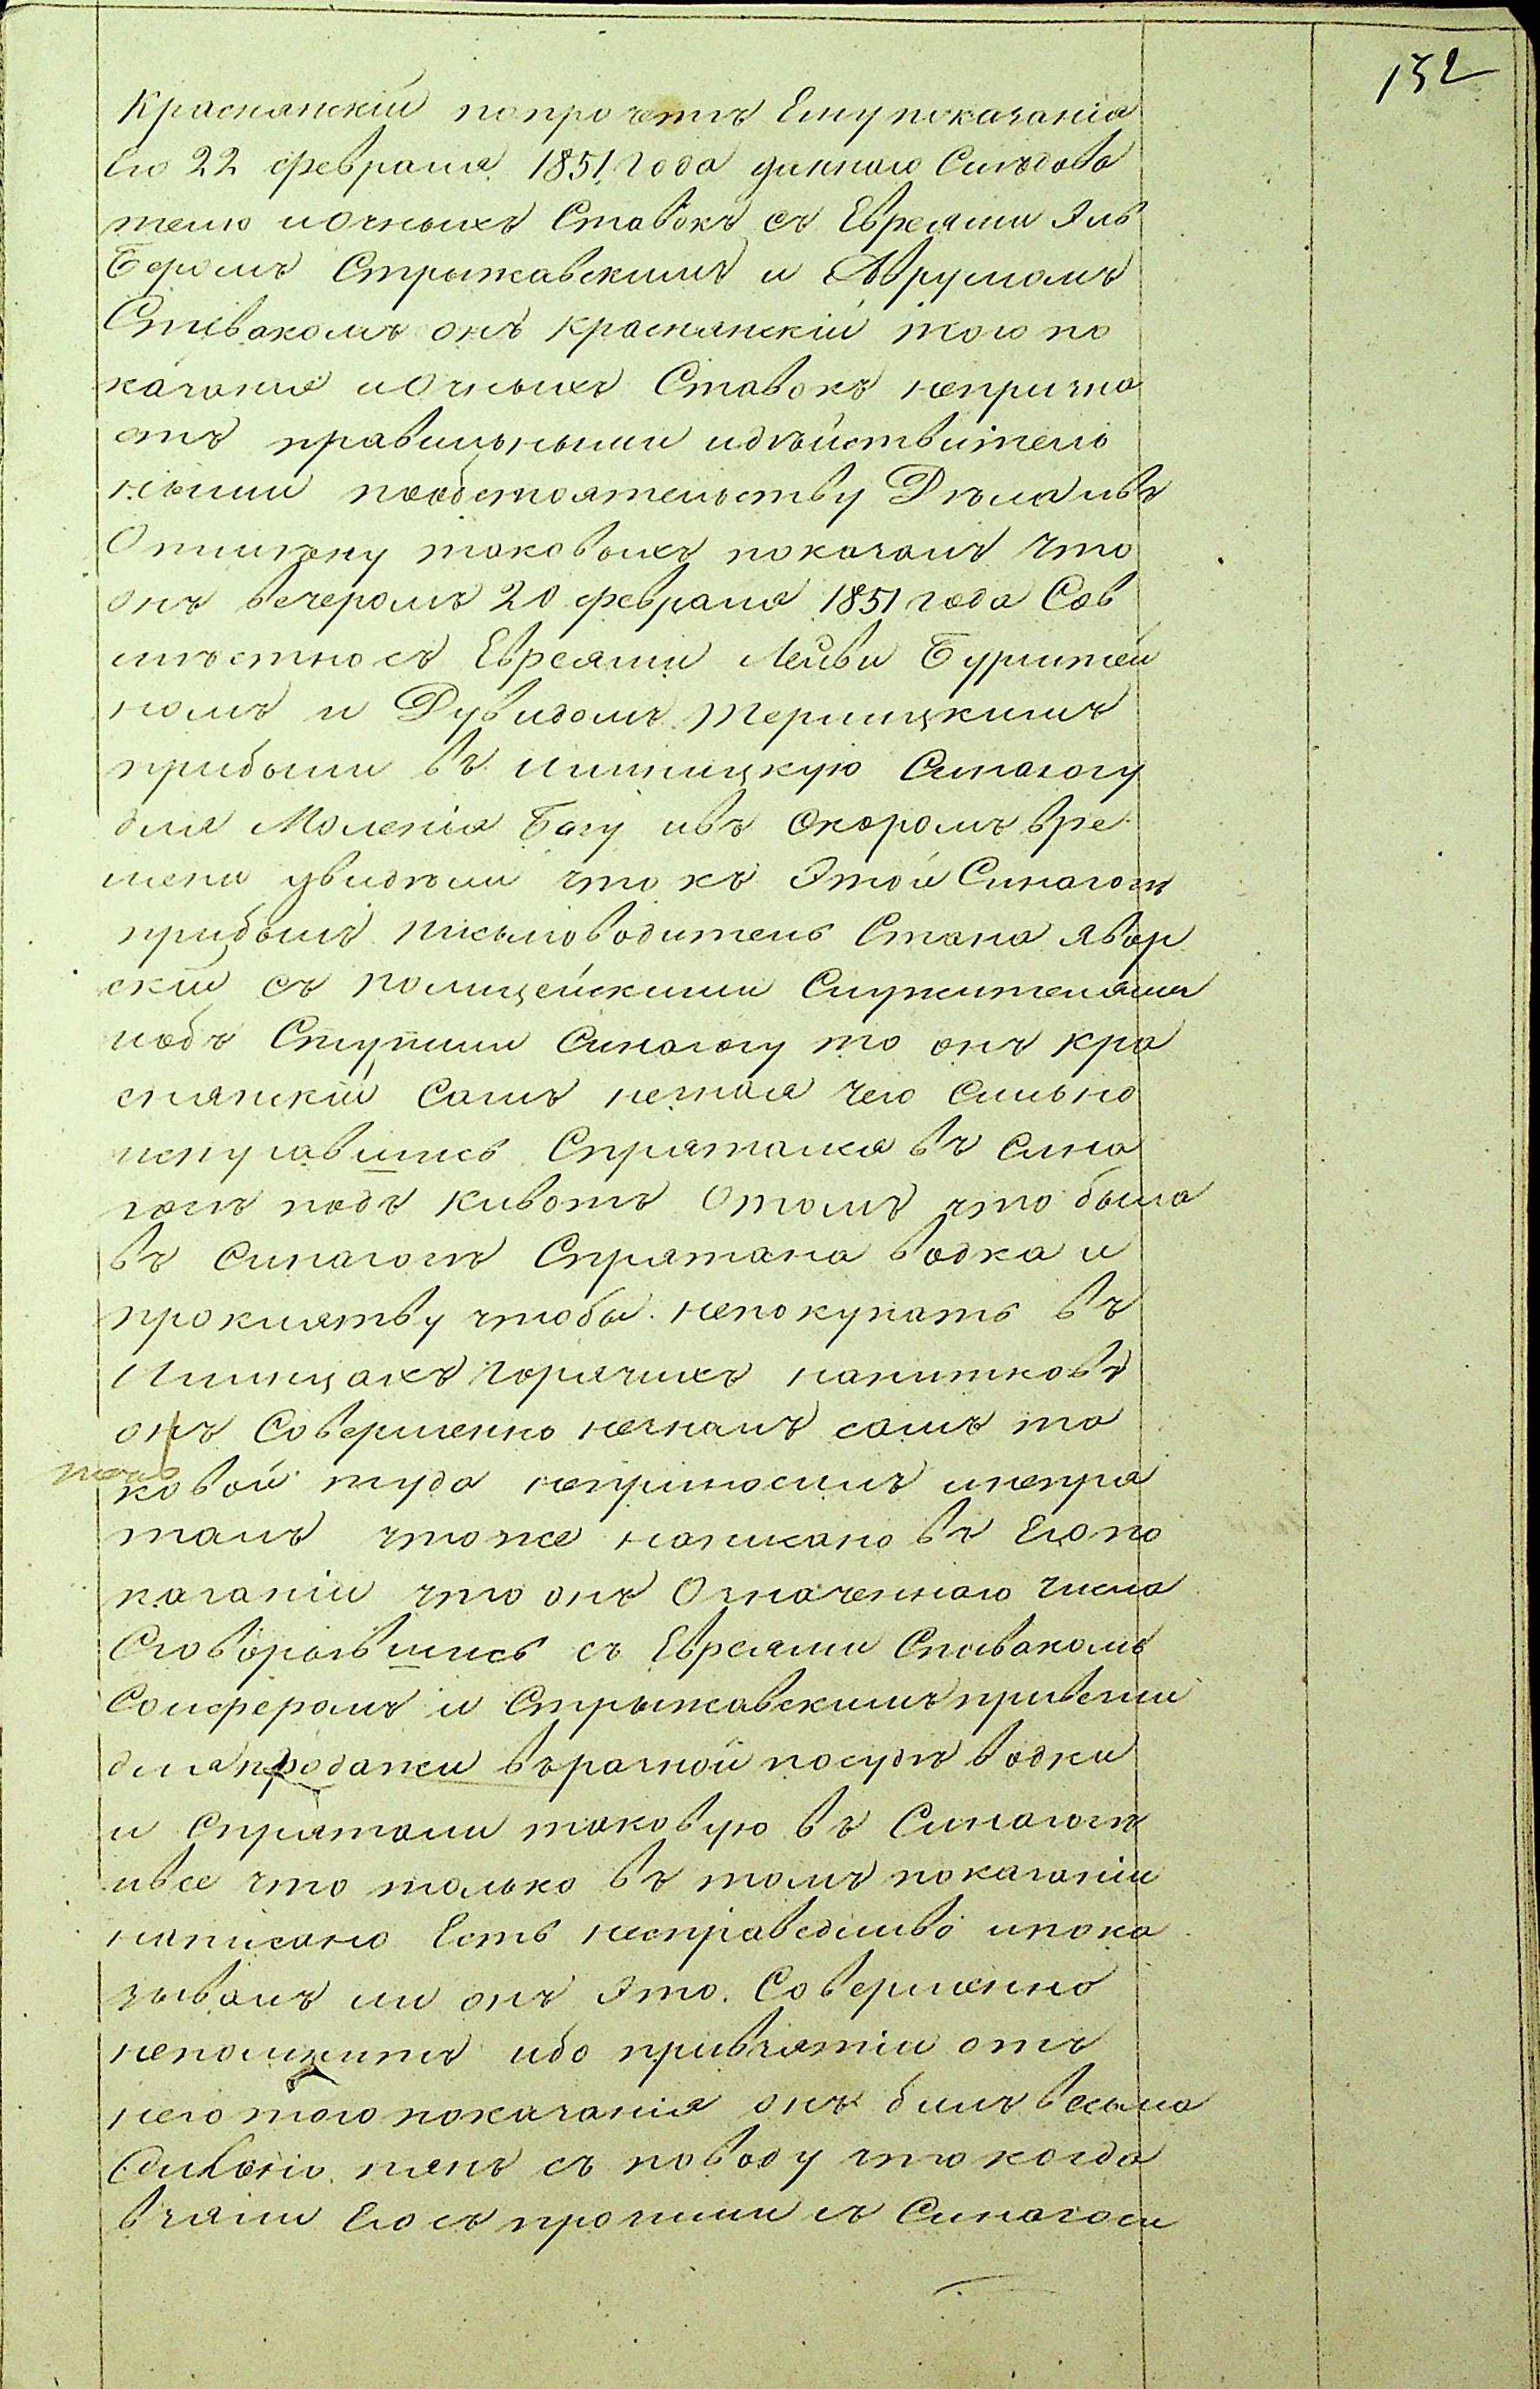 152
Краснянскій попрочетѣ Ему показанія
Его 22 февраля 1851 года данного Слѣдова
телю иОчныхъ Ставокъ съ Евреями Эль
Беромъ Стрыжавскимъ и Аврумомъ
Співаколмъ онъ Краснянскій того по
казанія иОчныхъ Ставокъ непризна
етъ правильными идѣйствитель
ными пообстоятельству Дѣла ивъ
Отмѣну таковыхъ показалъ что
онъ вечеромъ 20 февраля 1851 года Сов
мѣстно съ Евреями Лейви Бурштей
номъ и Дувидомъ Терлицкимъ
прибыли въ Линницкую Синагогу
для Моленія Богу ивъ Скоромъ вре
мени увидѣли что къ Этой Синагогѣ
прибылъ письмоводитель Стана Явор
скій съ полицейскими Служителями
иобъ Ступили Синагогу то онъ Кра
снянскій Самъ незная чего Сильно
испугавшись Спрятался въ Сина
гогѣ подъ Кивотъ Отомъ что была
въ Синагогѣ Спрятана водка и
проклятву чтобы непокупать въ
Линницахъ горячихъ напитковъ
онъ Совершенно незналъ самъ та
ковой туда неприносилъ инепря
талъ чтоже написано въ Его по
казаніи что онъ Означенного числа
Сговорившись съ Евреями Спиваколмъ
Солферомъ и Стрыжавскимъ привезли
для продажи въразной посудѣ водки
и Спрятали таковую въ Синагогѣ
ивсе что только въ томъ показаніи
написано Есть несправедливо ипока
зывалъ ли онъ Это Совершенно
непомнитъ ибо привзятіи отъ
него того показанія онъ былъ весьма
Сильно пянъ съ поводу что когда
взяли Его съ прочими съ Синагоги